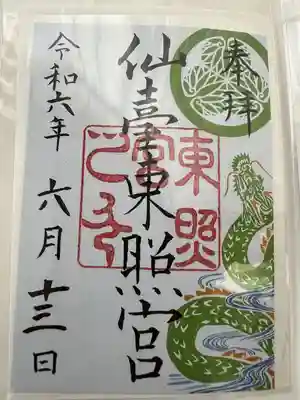 奉拝
仙臺東照宮
東照宮
令和六年 六月 十三日